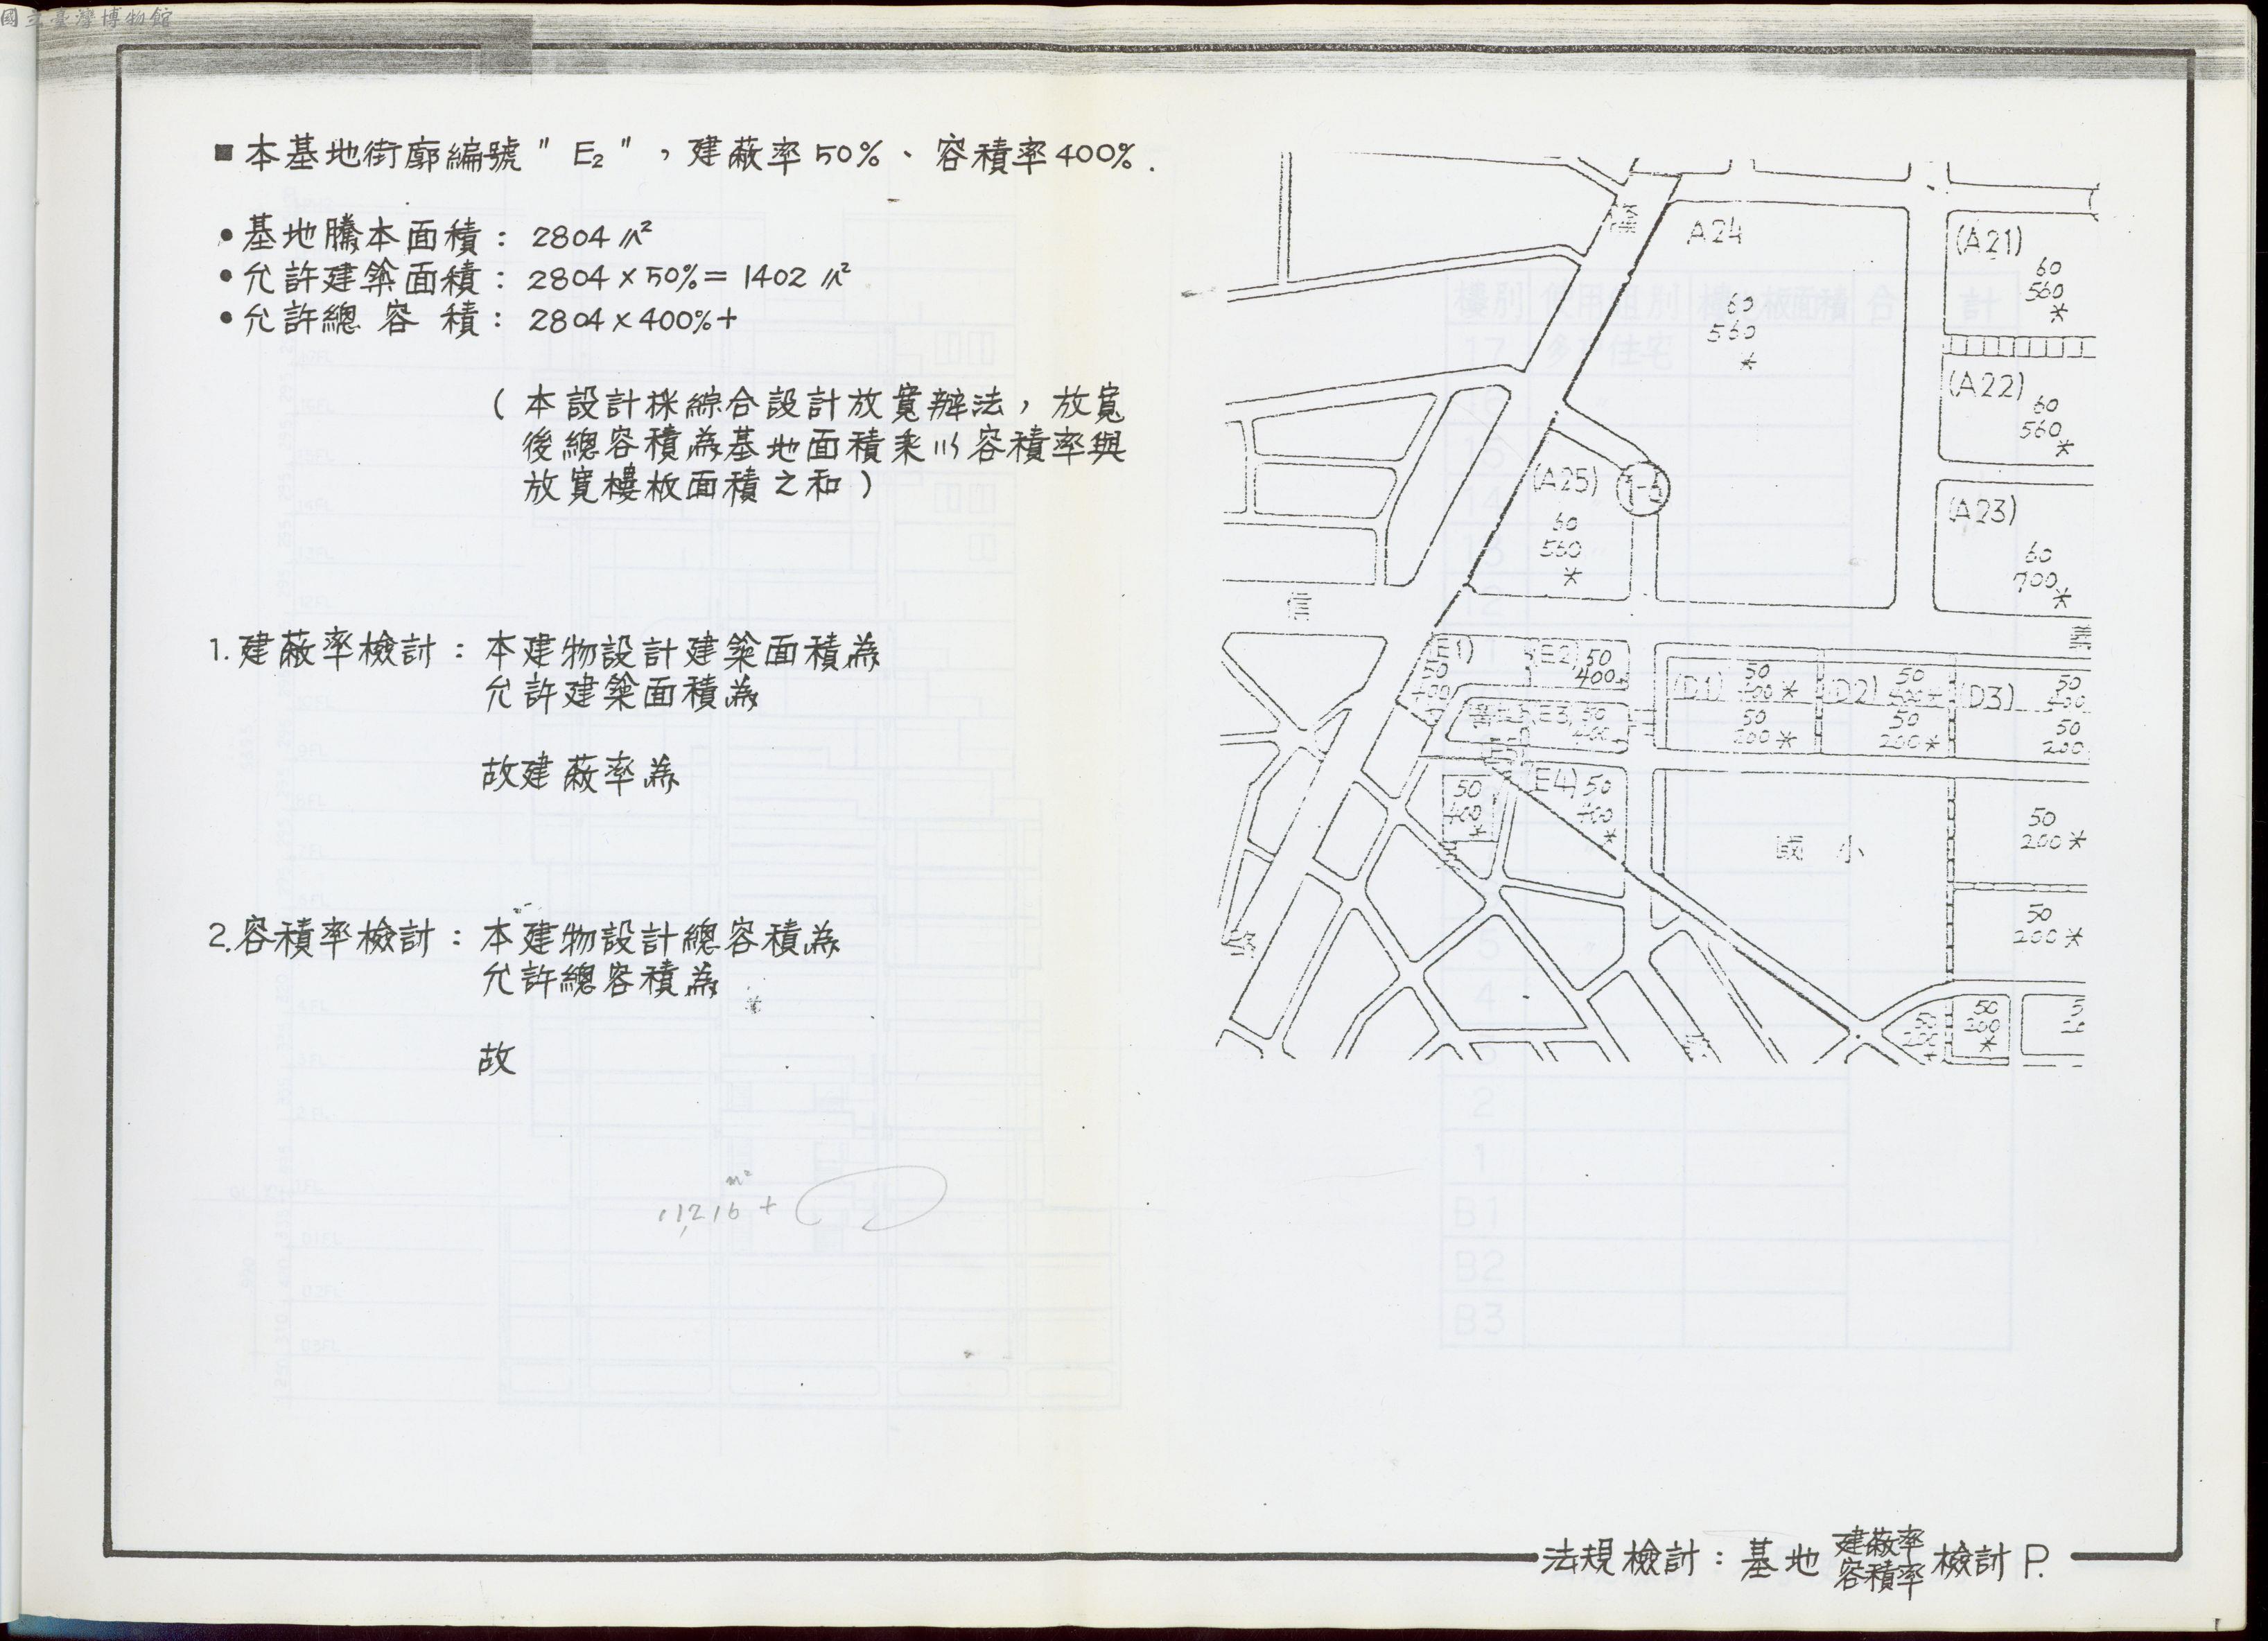 國立臺灣博物館
■本基地街廓編號"E₂"，建蔽率50%、容積率400%.
•基地謄本面積：2804㎡
•允許建築面積：2804×50%=1402㎡
•允許總容積：2804×400%+
(本設計採綜合設計放寬辦法，放寬
後總容積為基地面積乘以容積率與
放寬樓板面積之和)
1.建蔽率檢討：本建物設計建築面積為
允許建築面積為
故建蔽率為
2.容積率檢討：本建物設計總容積為
允許總容積為
故
㎡
11,216+
A24
60
560
*
(A21)
60
560
*
(A22)
60
560
*
(A25)
60
560
*
1-6
(A23)
60
700
*
信
義
(E1)
50
400
(E2) 50
400
(D1) 50
400 *
(D2) 50
400 *
(D3) 50
400
(E3) 50
400
50
200 *
50
200 *
50
200
(E4) 50
400
*
50
400
*
國小
50
200 *
50
200 *
路
50
200
*
50
200
*
法規檢討：基地建蔽率容積率檢討 P.